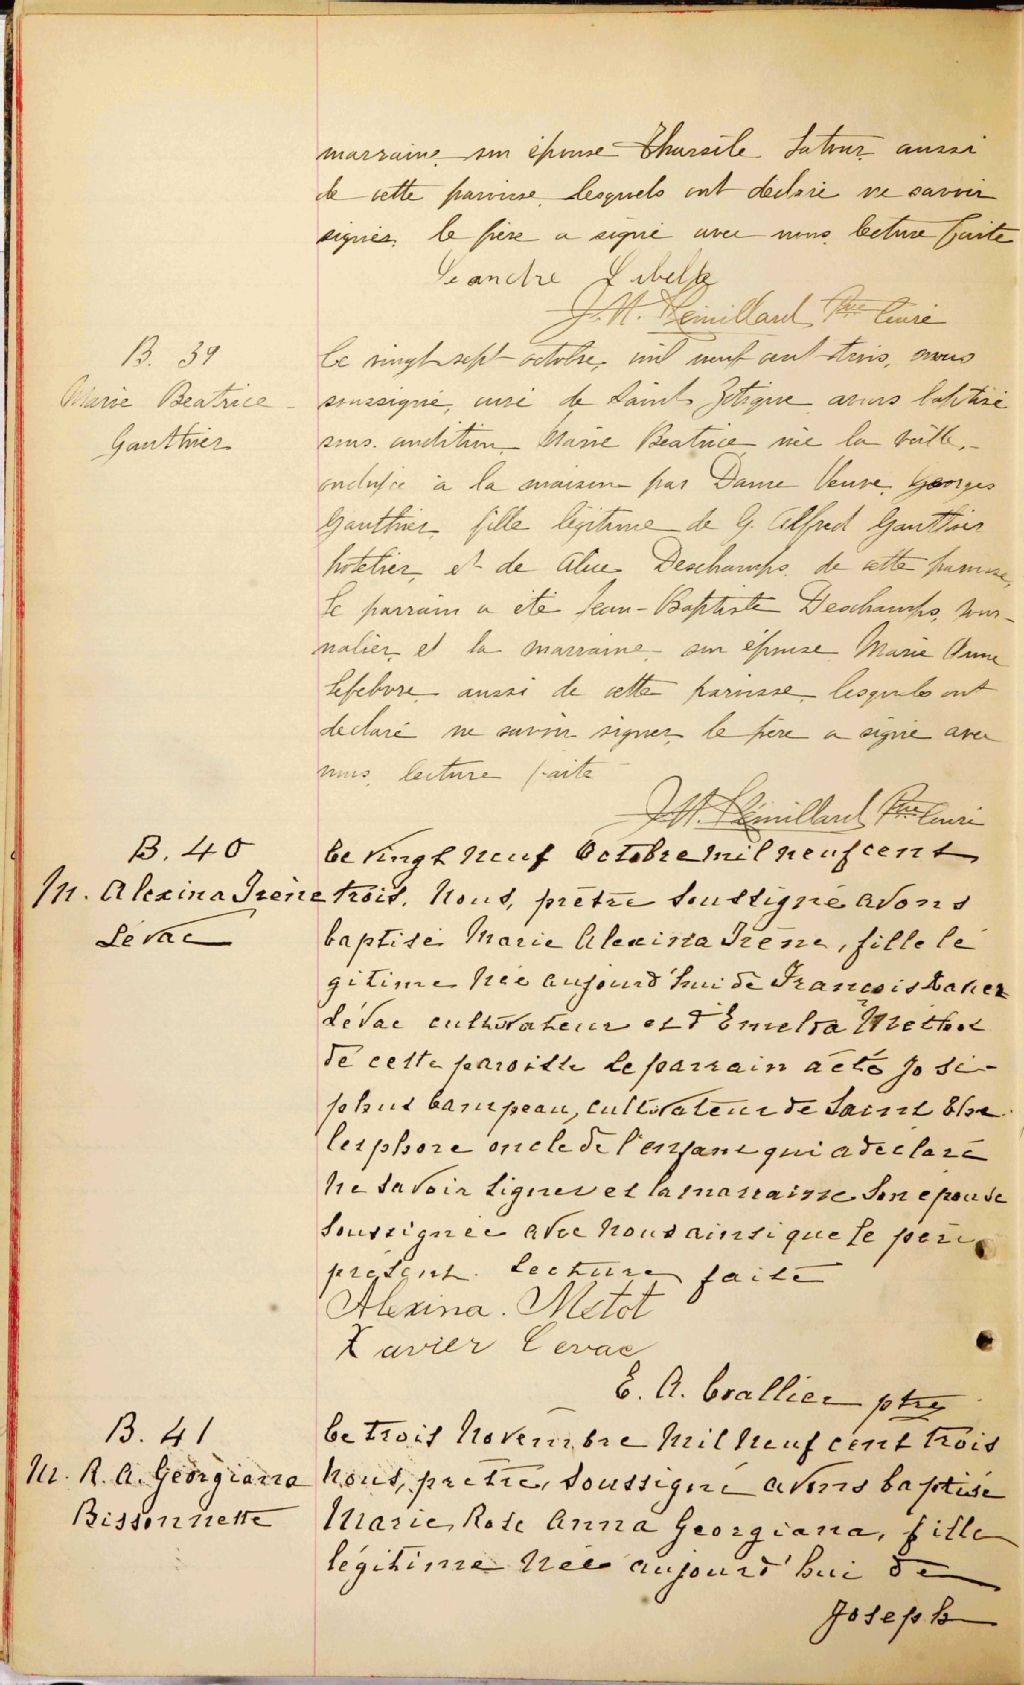 marraine son épouse Tharsile Latour aussi
de cette paroisse lesquels ont déclaré ne savoir
signer, le père a signé avec nous, lecture faite
Leandre
J. A. Rémillard Ptre Curé
B. 39
Marie Beatrice
Gauthier
Ce vingt-sept octobre, mil neuf cent trois, nous
soussigné, curé de Saint Zotique avons baptisé
sous condition Marie Beatrice née la veille,
ondoyée à la maison par Dame Veuve Georges
Gauthier, fille légitime de G. Alfred Gauthier
hotelier, et de Alice Deschamps de cette paroisse,
le parrain a été Jean-Baptiste Deschamps, jour-
nalier, et la marraine son épouse Marie Anne
Lefebvre aussi de cette paroisse, lesquels ont
declaré ne savoir signer, le père a signé avec
nous, lecture faite
J. A. Rémillard Ptre Curé
B. 40
M. Alexina Irène
Levac
Ce vingt neuf Octobre mil neuf cent
trois. Nous, prètre soussigné avons
baptisé Marie Alexina Irène, fille lé
gitime née aujourd'hui de François Xavier
Lévac cultivateur et d'Emelda
de cette paroisse Le parrain a été Jo sé-
phus Campeau, cultivateur de Saint Thé
lesphore oncle de l'enfant qui a déclaré
ne savoir signer et la marraine son épouse
soussignée avec nous ainsi que le père
présent. Lecture faite
Alexina. Metot
Xavier Levac
E. A. Coallier ptre
B. 41
M. R. A. Georgiana
Bissonnette
Ce trois Novembre mil neuf cent trois
nous, prètre, soussigné avons baptisé
Marie Rose Anna Georgiana, fille
légitime née aujourd'hui de
Joseph